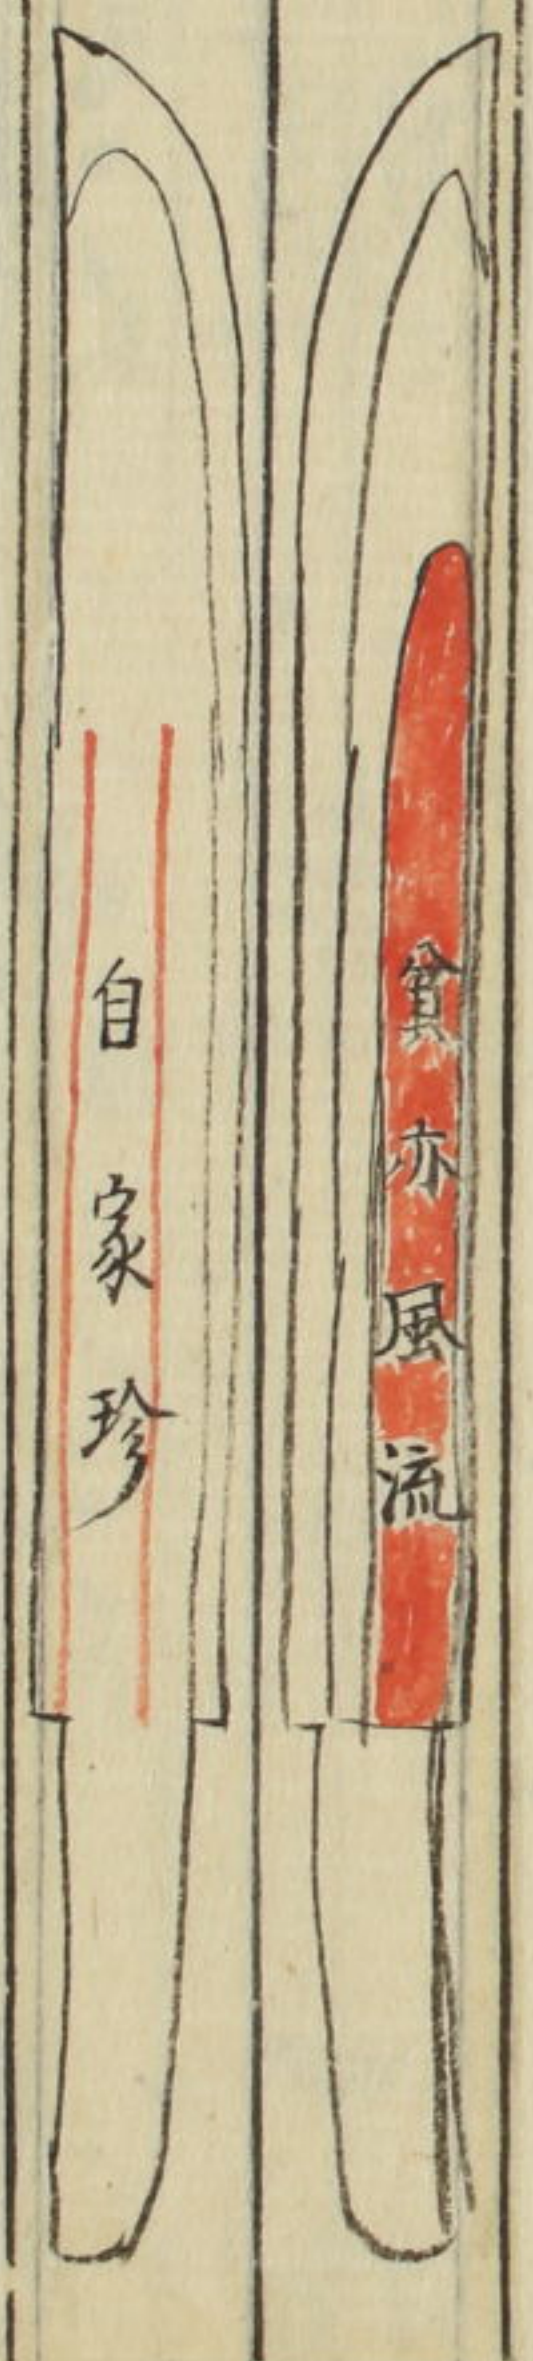 貧亦風流
自家珍